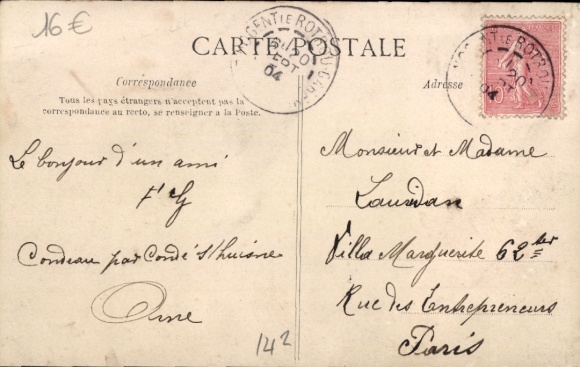 16 €
CARTE POSTALE
NOGENT LE ROTROU
20
SEPT
04
NOGENT LE ROTROU
20
04
Correspondance
Adresse
Tous les pays étrangers n'acceptent pas la
correspondance au recto, se renseigner à la Poste.
Le bonjour d'un ami
F G
Condeau par Condé s/huisne
Orne
142
Monsieur et Madame
Villa Marguerite 62 ter
Rue des Entrepreneurs
Paris